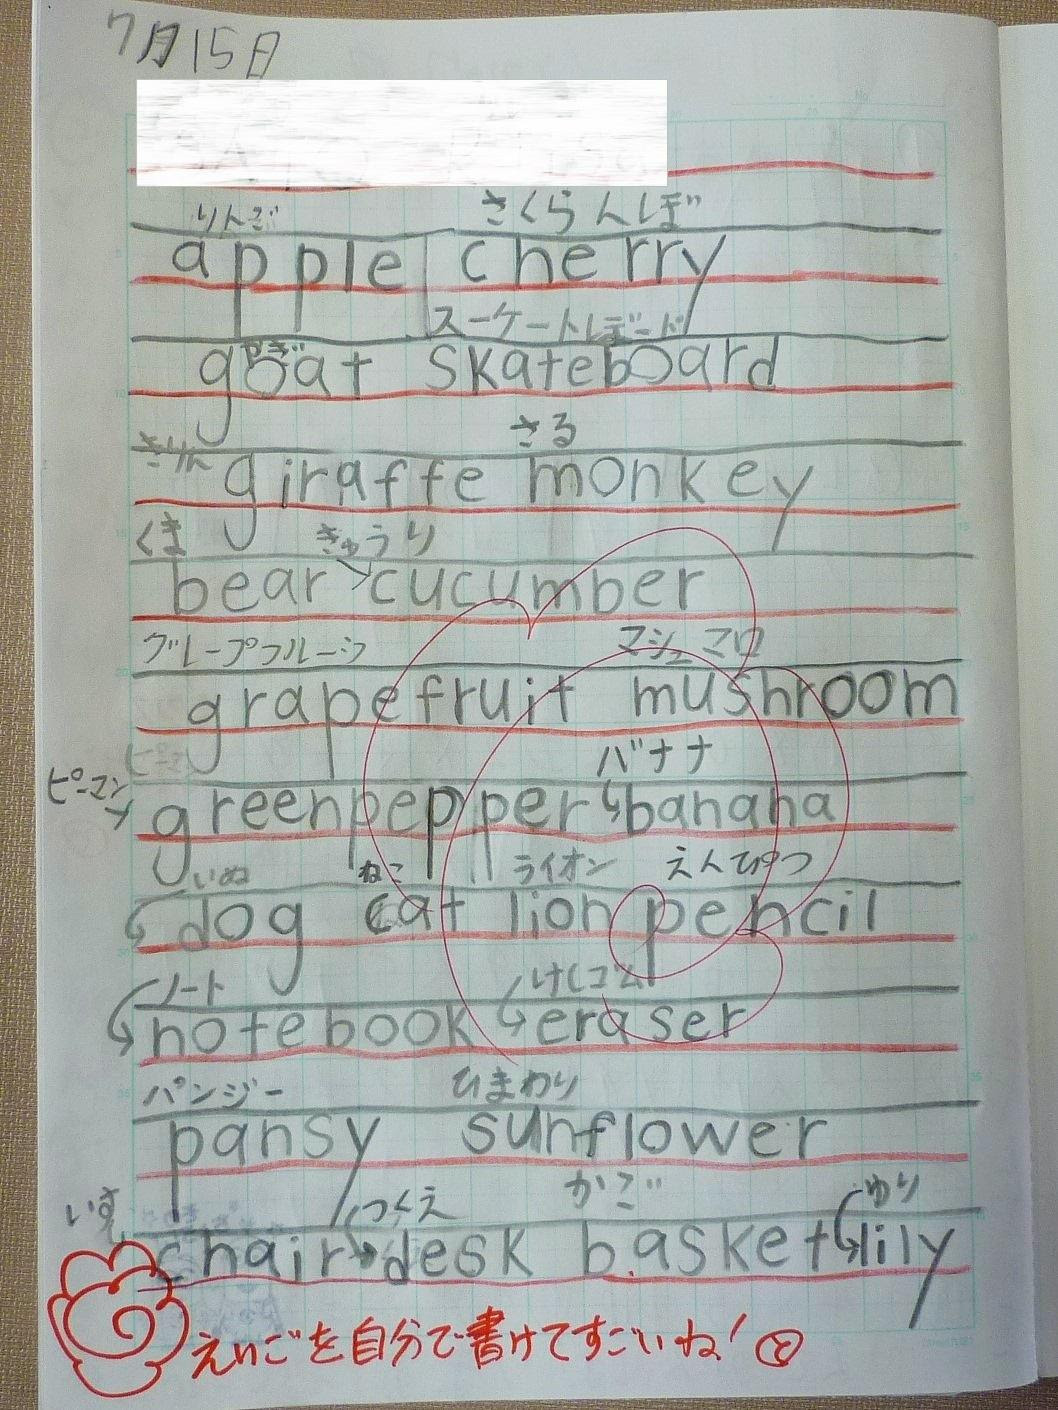 7月15日
りんご さくらんぼ
apple cherry
やぎ スーケートしぼード
goat skateboard
きりん さる
giraffe monkey
くま きゅうり
bear cucumber
グレープフルーツ マシュマロ
grapefruit mushroom
ピーマン バナナ
greenpepper banana
いぬ ねこ ライオン えんぴつ
dog cat lion pencil
ノート けしゴム
notebook eraser
パンジー ひまわり
pansy sunflower
いす つくえ かご ゆり
chair desk basket lily
えいごを自分で書けてすごいね!